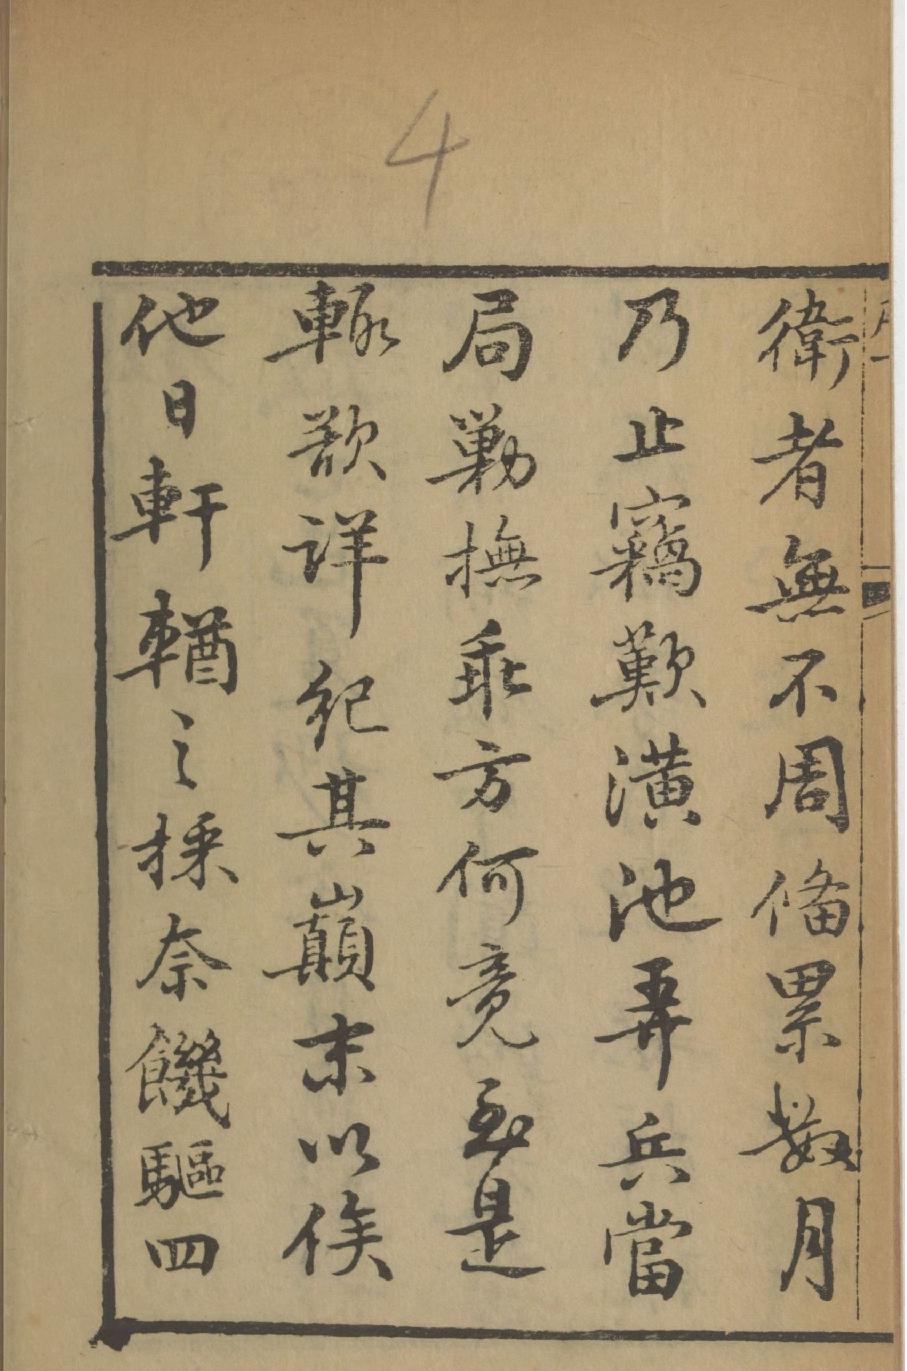 4
衛者無不周備累數月
乃止竊歎潢池弄兵當
局剿撫乖方何竟至是
輙欲详紀其巔末以俟
他日軒輶之採奈饑驅四